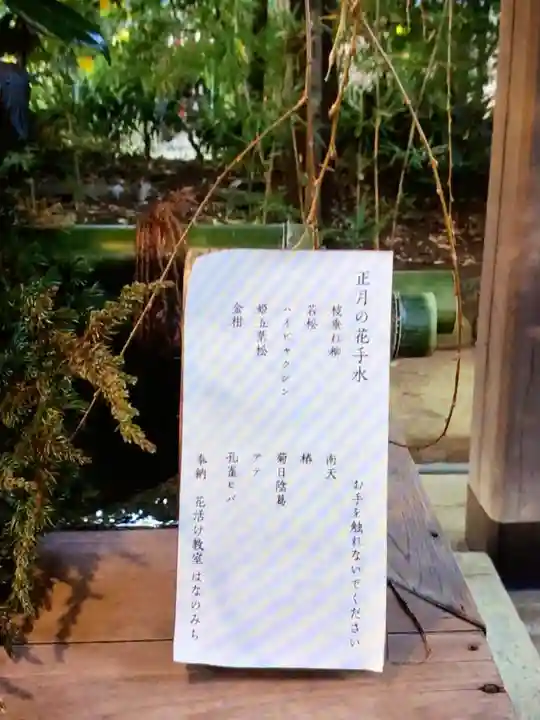 正月の花手水
お手を触れないでください
枝垂れ柳
南天
若松
椿
ハイビャクシン
菊日陰葛
姫五葉松
アテ
金柑
孔雀ヒバ
奉納 花活け教室 はなのみち